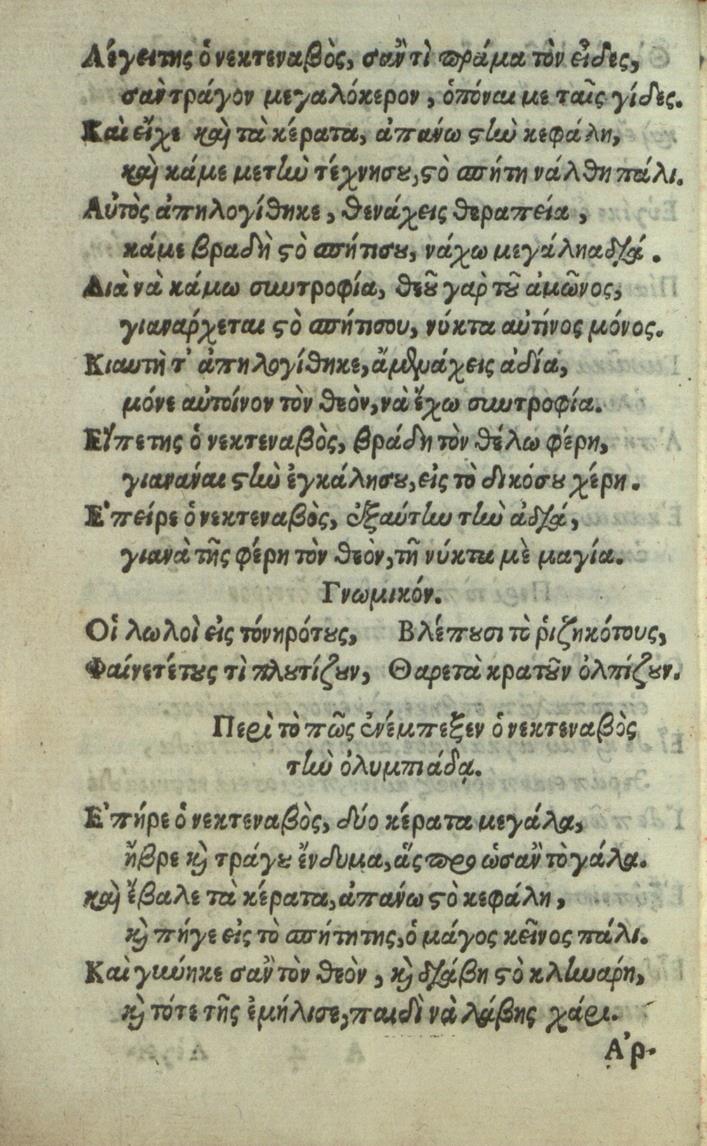 Λέγειτης ὁ νεκτεναβὸς, σαὐτὶ πράμα τὸν εἶδες,
σαντράγον μεγαλόκερον, ὁπόναι με ταῖς γίδες.
Καὶ εἶχε καὶ τὰ κέρατα, ἀπάνω ςτὴν κεφάλη,
καὶ κάμε μετὴν τέχνησου, ςὸ σπήτη νάλθη πάλι.
Αὐτὸς ἀπηλογίθηκε, θενάχεις θεραπεία,
κάμε βραδὴ ςὸ σπήτισου, νάχω μεγάλη αδειά.
Διὰ νὰ κάμω συντροφία, θεοῦ γαρ τοῦ ἀμῶνος,
γιαναρχεται ςὸ σπήτισου, νύκτα αὐτίνος μόνος.
Κιαυτὴ τ' ἀπηλογίθηκε, ἄμδεμάχεις ἀδία,
μόνε αὐτοίνον τὸν θεὸν, νὰ ἔχω συντροφία.
Εἴπετης ὁ νεκτεναβὸς, βράδη τὸν θέλω φέρη,
γιανανάι ςτὴν ἐγκάλησου, εἰς τὸ δικόσου χέρη.
Ἐπείρε ὁ νεκτεναβὸς, ἐξαύτην τὴν ἀδειά,
γιανὰ τῆς φέρη τὸν θεὸν, τῆ νύκτα μὲ μαγία.
Γνωμικόν.
Οἱ λωλοὶ εἰς τόνηρότους, Βλέπουσι τὸ ῥιζηκότους,
Φαίνετέτους τὶ πλουτίζουν, Θαρετὰ κρατοῦν ὀλπίζουν.
Περὶ τὸ πῶς ἐνέμπεξεν ὁ νεκτεναβὸς
τὴν ὀλυμπιάδα.
Ἐπήρε ὁ νεκτεναβὸς, δύο κέρατα μεγάλα,
ἤβρε καὶ τράγου ἔνδυμα, ἄσπρο ὡσαν τὸ γάλα.
καὶ ἔβαλε τὰ κέρατα, ἀπάνω ςὸ κεφάλη,
καὶ πήγε εἰς τὸ σπήτητης, ὁ μάγος κεῖνος πάλι.
Καὶ γινήκε σαν τὸν θεὸν, καὶ διάβη ςὸ κλινάρη,
καὶ τότε τῆς ἐμήλισε, παιδὶ νὰ λάβης χάρι.
Ἀρ-